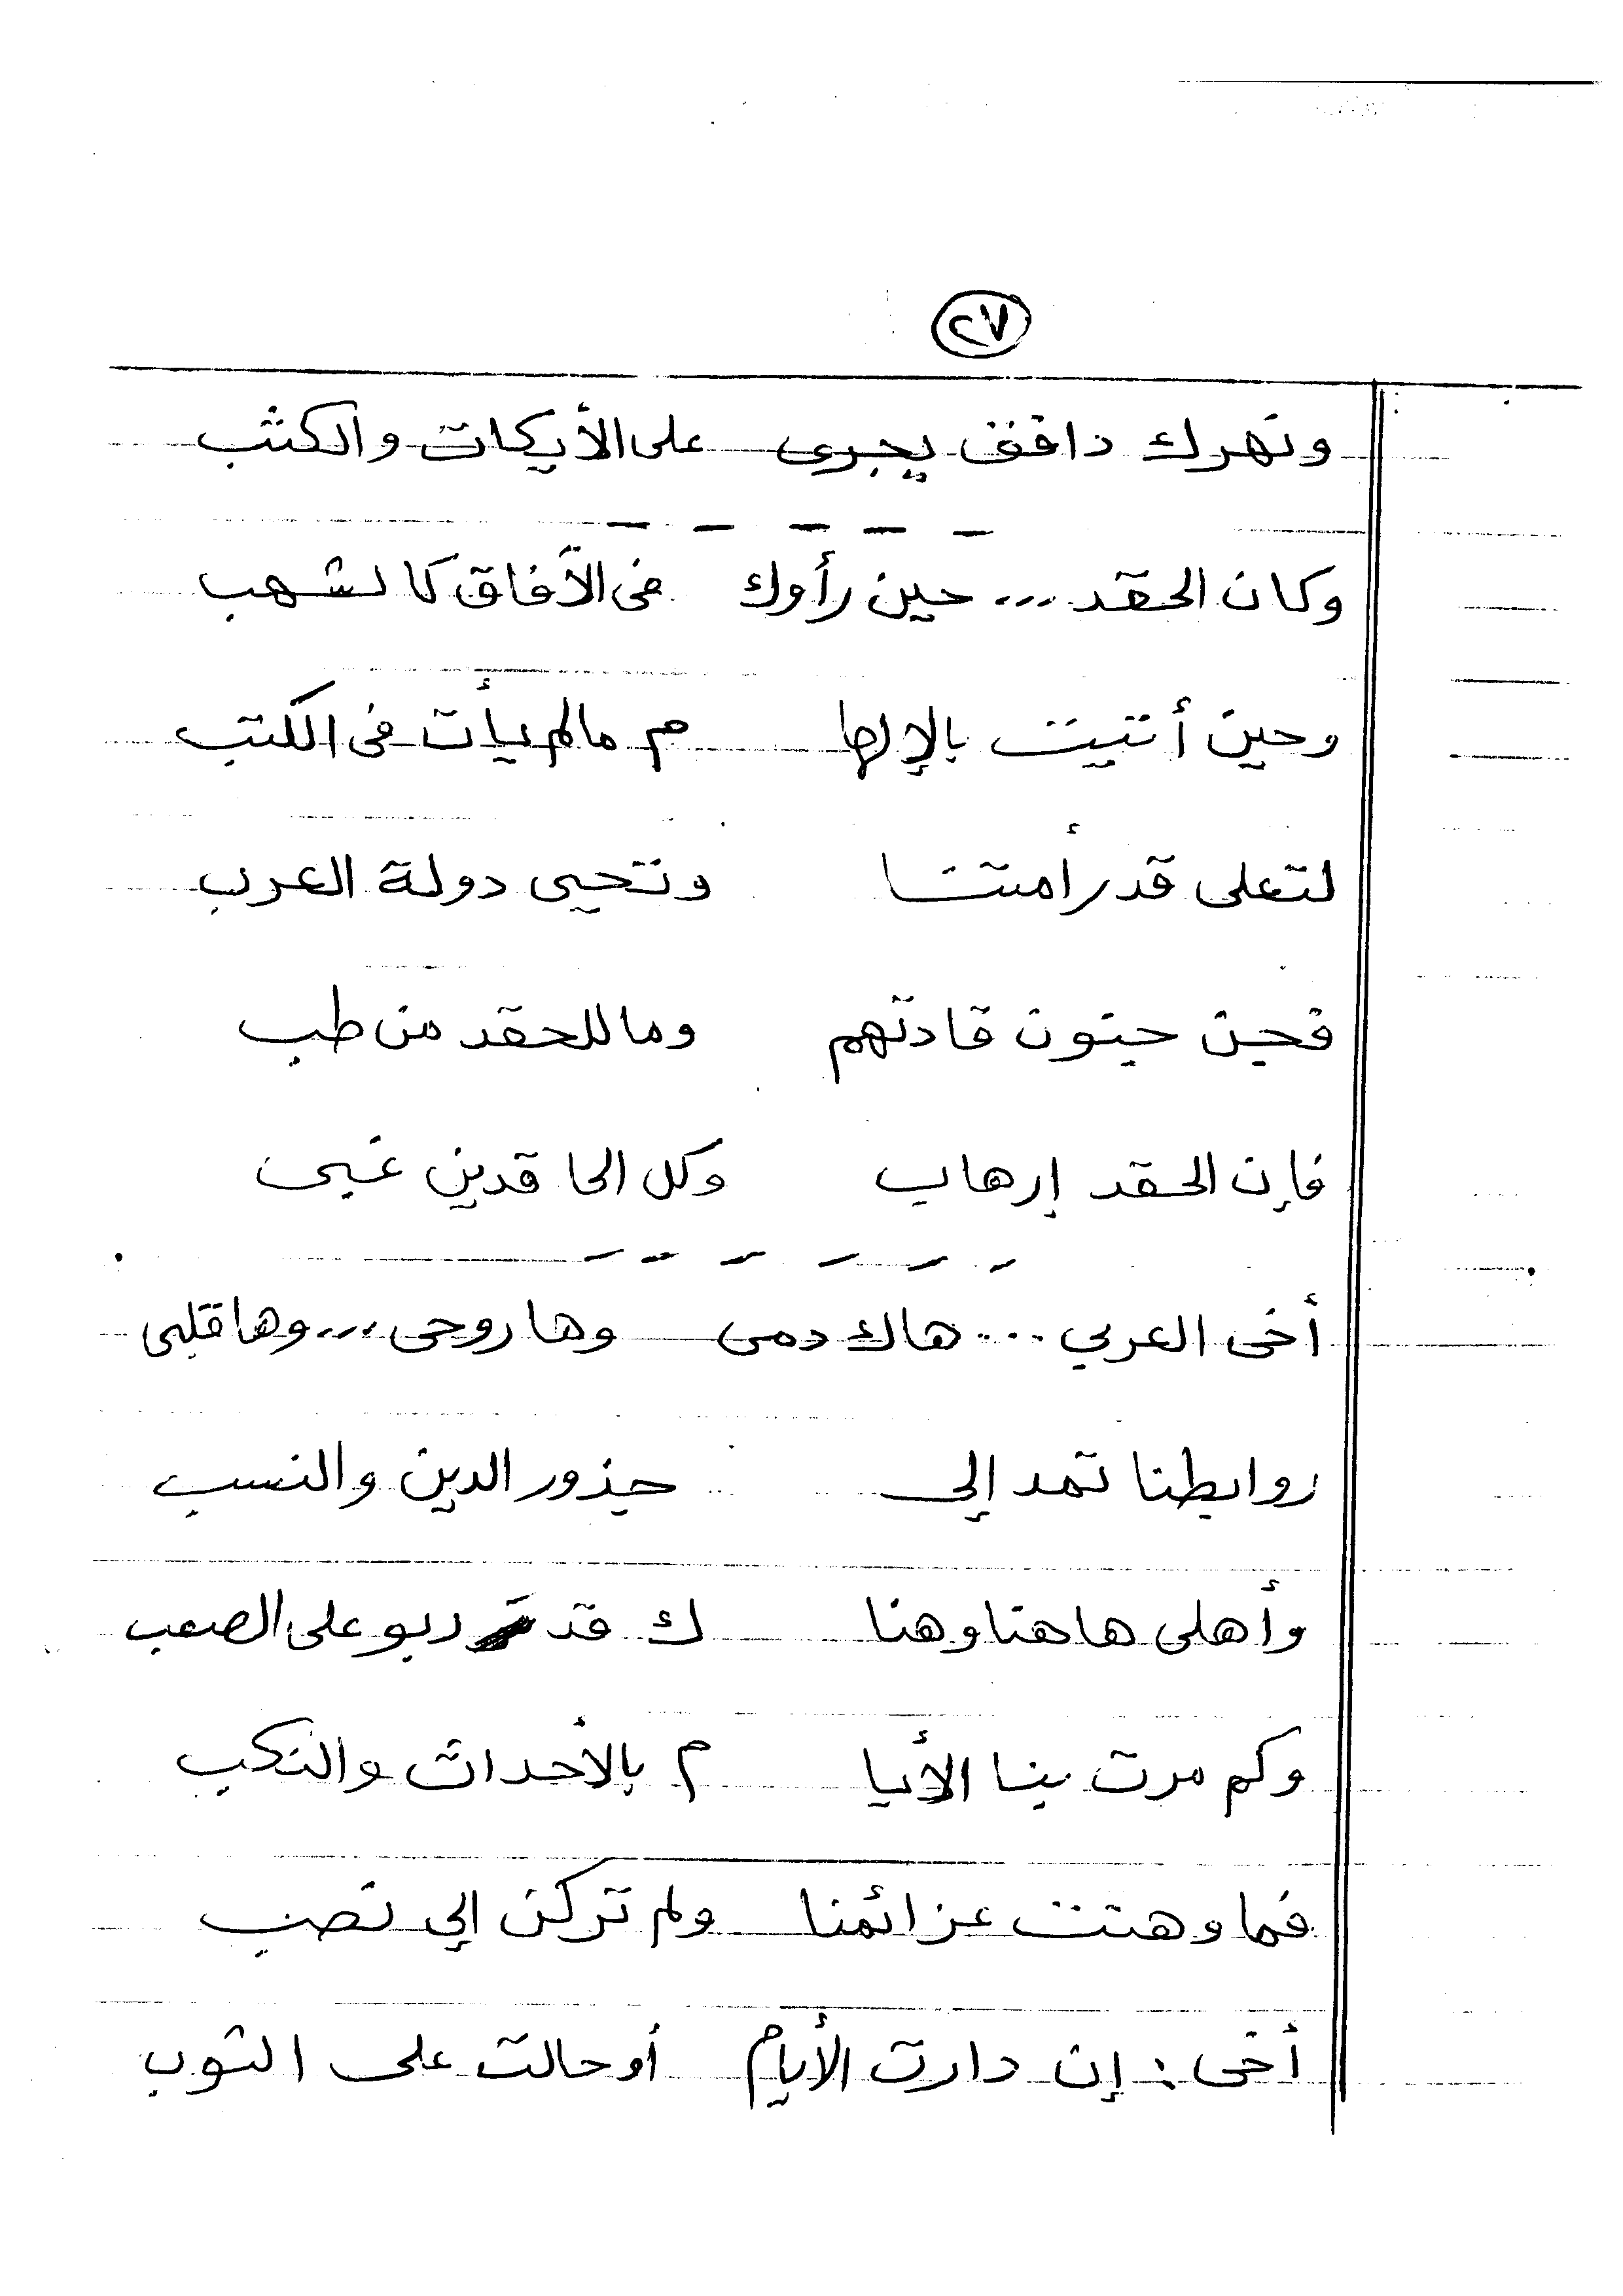 ٢٧
ونهرك دافق يجرى على الأيكات والكثب
وكان الحقد ... حين رأوك فى الآفاق كالشهب
وحين أتيت بالإلها م مالم يأت فى الكتب
لتعلى قدر أمتنا وتحيى دولة العرب
فجن جنون قادتهم وما للحقد من طب
فإن الحقد إرهاب وكل الحاقدين غبى
أخى العربي ... هاك دمى وها روحى ... وها قلبى
روابطنا تمد إلى جذور الدين والنسب
وأهلى هاهنا وهنا ك قد ربو على الصعب
وكم مرت بنا الأيا م بالأحداث والنكب
فما وهنت عزائمنا ولم تركن إلي نصب
أخى : إن دارت الأيام أو حالت على الثوب